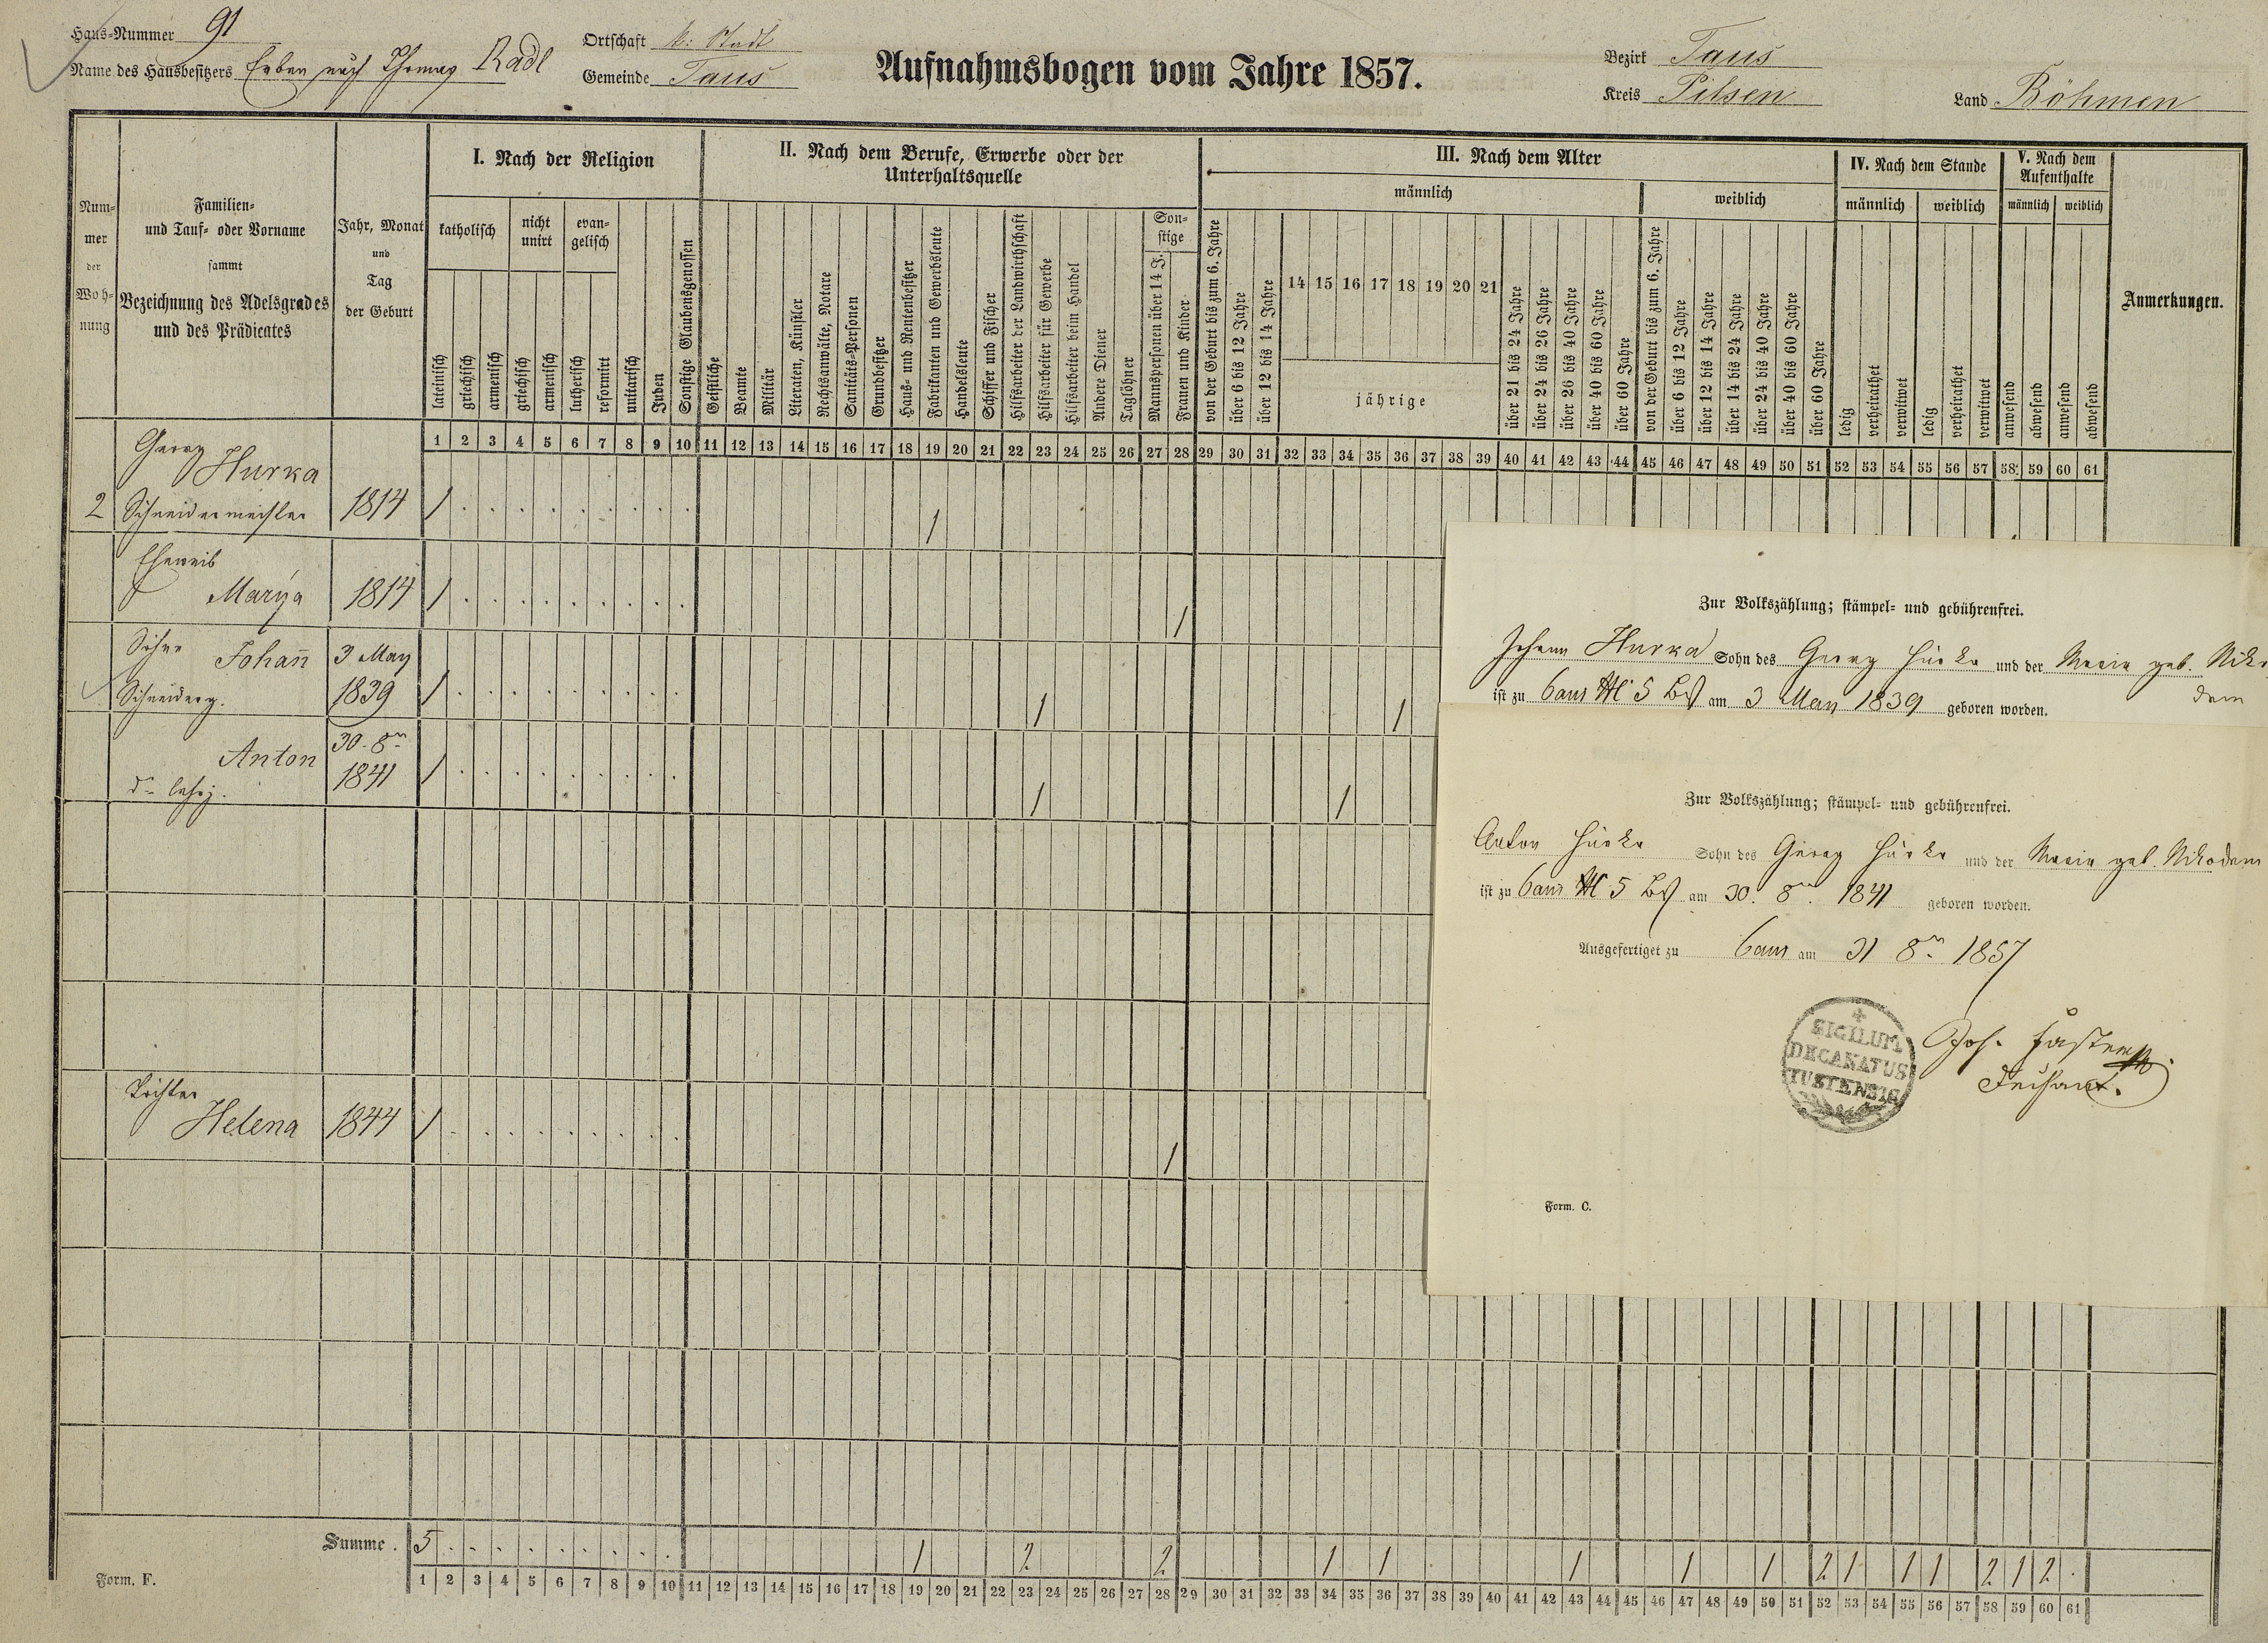 Haus-Nummer 91
Name des Hausbesitzers Erben nach Thomas Radl
Ortschaft k: Stadt
Gemeinde Taus
Aufnahmsbogen vom Jahre 1857.
Bezirk Taus
Kreis Pilsen
Land Böhmen
Num-
mer
der
Woh-
nung
Familien-
und Tauf- oder Vorname
sammt
Bezeichnung des Adelsgrades
und des Prädicates
Jahr, Monat
und
Tag
der Geburt
I. Nach der Religion
katholisch
nicht
unirt
evan-
gelisch
lateinisch
griechisch
armenisch
griechisch
armenisch
lutherisch
reformirt
unitarisch
Juden
Sonstige Glaubensgenossen
II. Nach dem Berufe, Erwerbe oder der
Unterhaltsquelle
Geistliche
Beamte
Militär
Literaten, Künstler
Rechtsanwälte, Notare
Sanitäts-Personen
Grundbesitzer
Haus- und Rentenbesitzer
Fabrikanten und Gewerbsleute
Handelsleute
Schiffer und Fischer
Hilfsarbeiter der Landwirthschaft
Hilfsarbeiter für Gewerbe
Hilfsarbeiter beim Handel
Andere Diener
Taglöhner
Son-
stige
Mannspersonen über 14 J.
Frauen und Kinder
III. Nach dem Alter
männlich
von der Geburt bis zum 6. Jahre
über 6 bis 12 Jahre
über 12 bis 14 Jahre
14 15 16 17 18 19 20 21
jährige
über 21 bis 24 Jahre
über 24 bis 26 Jahre
über 26 bis 40 Jahre
über 40 bis 60 Jahre
über 60 Jahre
weiblich
von der Geburt bis zum 6. Jahre
über 6 bis 12 Jahre
über 12 bis 14 Jahre
über 14 bis 24 Jahre
über 24 bis 40 Jahre
über 40 bis 60 Jahre
über 60 Jahre
IV. Nach dem Stande
männlich weiblich
ledig
verheirathet
verwitwet
ledig
verheirathet
verwitwet
V. Nach dem
Aufenthalte
männlich weiblich
anwesend
abwesend
anwesend
abwesend
Anmerkungen.
1 2 3 4 5 6 7 8 9 10 11 12 13 14 15 16 17 18 19 20 21 22 23 24 25 26 27 28 29 30 31 32 33 34 35 36 37 38 39 40 41 42 43 44 45 46 47 48 49 50 51 52 53 54 55 56 57 58 59 60 61
Georg
Hurka
2 Schneidermeister 1814 1 . . . . . . . . . 1
Eheweib
Marya 1814 1 . . . . . . . . . 1
Söhne Johañ 3 May
Schneiderg. 1839 1 . . . . . . . . . 1 1
Anton 30. 8br
1841 1 . . . . . . . . . 1 1
do Lehrj.
Tochter
Helena 1844 1 . . . . . . . . . 1
Zur Volkszählung; stämpel- und gebührenfrei.
Johann Hurka Sohn des Georg Hurka und der Maria geb. Niko
dem
ist zu Taus N 5 Bst am 3 May 1839 geboren worden.
Zur Volkszählung; stämpel- und gebührenfrei.
Anton Hurka Sohn des Georg Hurka und der Maria geb. Nikodem
ist zu Taus N 5 Bst am 30. 8br 1841 geboren worden.
Ausgefertiget zu Taus am 31 8br 1857
SIGILUM
DECANATUS
TUSTENSIS
Form. C.
Summe . 5 . . . . . . . . . 1 2 2 1 1 1 1 1 2 1 1 1 2 1 2 .
1 2 3 4 5 6 7 8 9 10 11 12 13 14 15 16 17 18 19 20 21 22 23 24 25 26 27 28 29 30 31 32 33 34 35 36 37 38 39 40 41 42 43 44 45 46 47 48 49 50 51 52 53 54 55 56 57 58 59 60 61
Form. F.